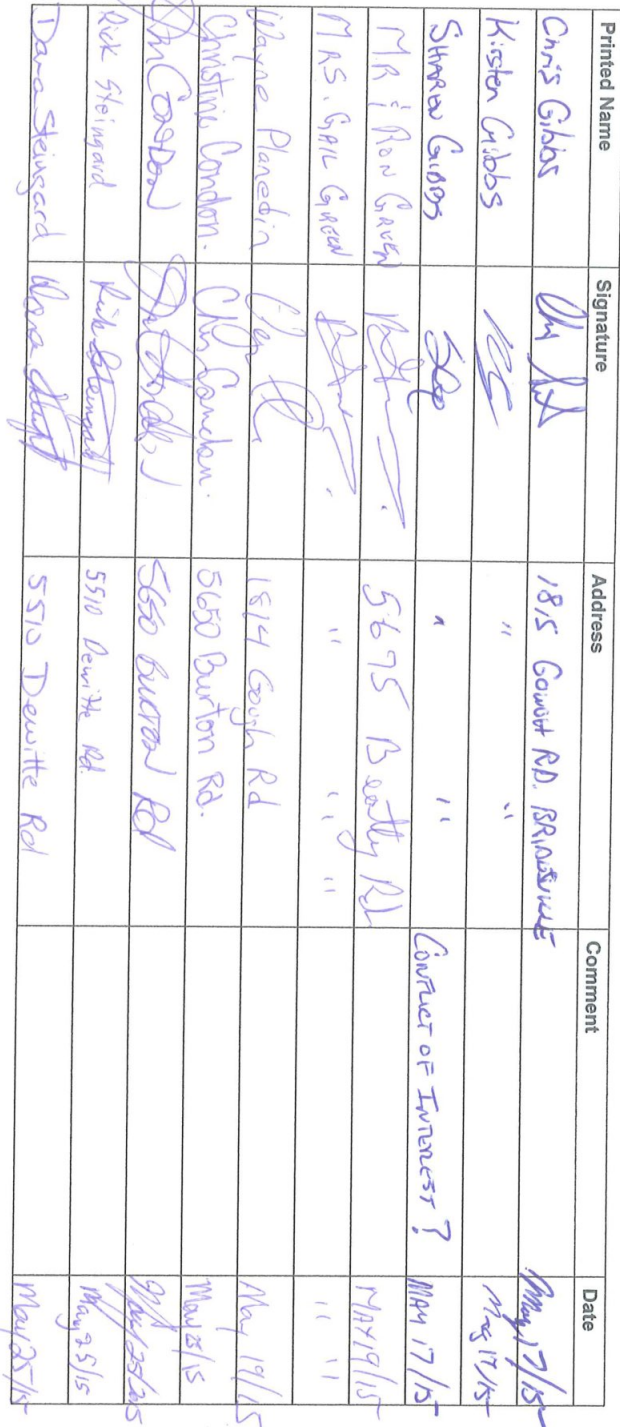 Printed Name Signature Address Comment Date
Chris Gibbs 1815 RD. May 17/15
Kirsten Gibbs " " May 17/15
SHAREN GIBBS " " CONFLICT OF INTEREST? MAY 17/15
MR & RON GREEN 5675 Beatty Rd MAY 19/15
MRS. GAIL GREEN " " " " "
Wayne Planetin 1814 Gough Rd May 19/15
Christine Condon. Chr Condon. 5650 Burton Rd. May 25/15
CONDON 5650 BURTON Rd May 25/2015
Rick Steingard Rick Steingard 5510 Dewitte Rd. May 25/15
Dana Steingard Dana 5510 Dewitte Rd May 25/15